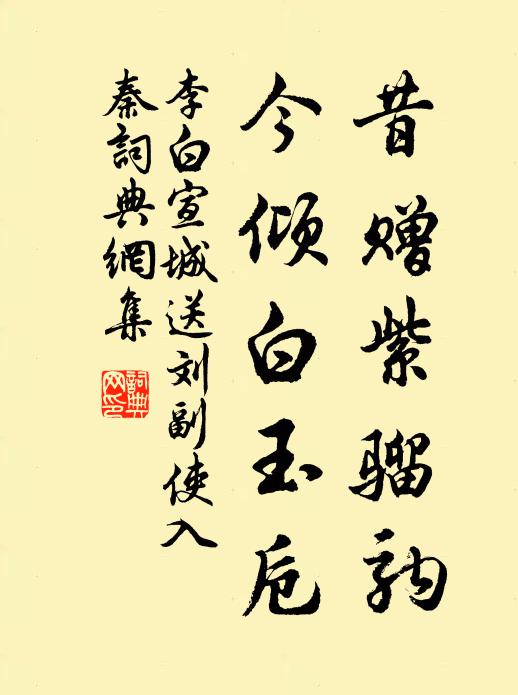 昔赠紫骝驹
今倾白玉卮
李白宣城送刘副使入
秦詞典網集
詞典
网印